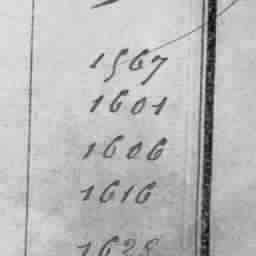 1567
1601
1606
1616
1628